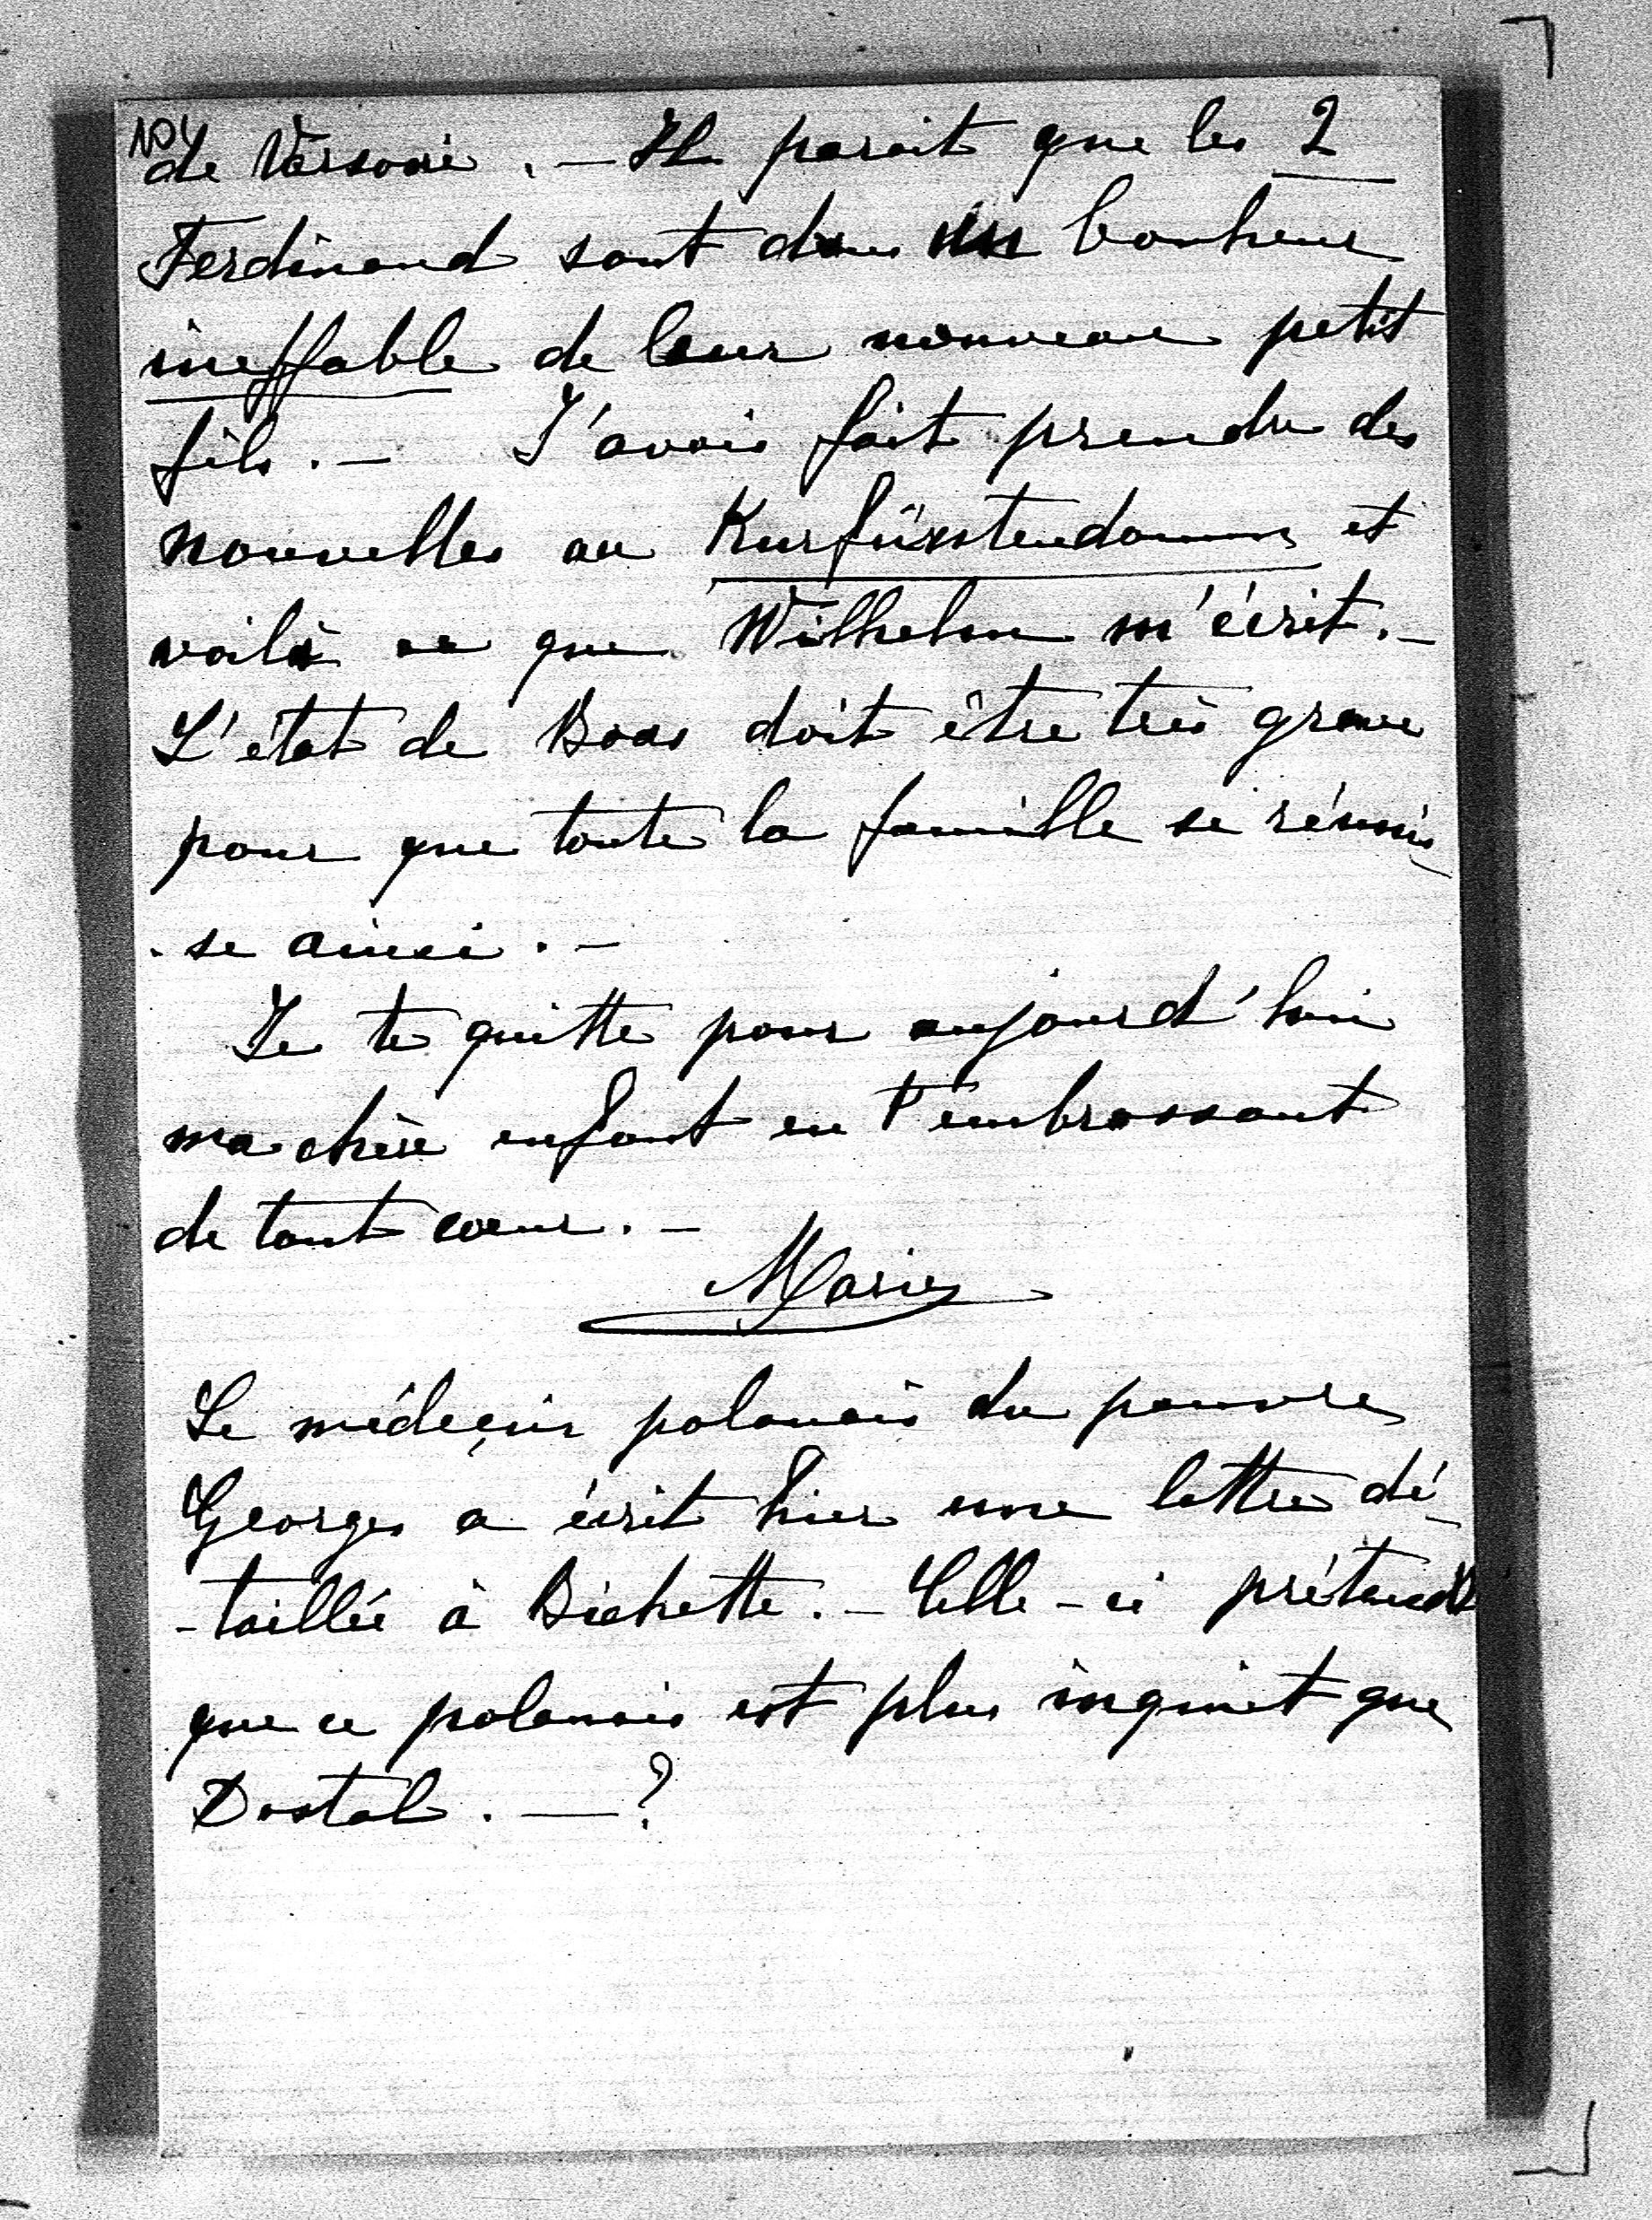 104
de Varsovie. — Il parait que les 2
Ferdinand sont dans un bonheur
ineffable de leur nouveau petit
fils. — J'avais fait prendre des
nouvelles au Kurfürstendamm et
voilà ce que Wilhelm m'écrit. —
L'état de Boas doit être très grave
pour que toute la famille se réunis-
-se ainsi. —
Je te quitte pour aujourd'hui
ma chère enfant en t'embrassant
de tout coeur. —
Marie
Le médecin polonais du pauvre
Georges a écrit hier une lettre dé-
-taillée à Bichette. — Celle-ci prétend
que ce polonais est plus inquiet que
Dostal. — ?